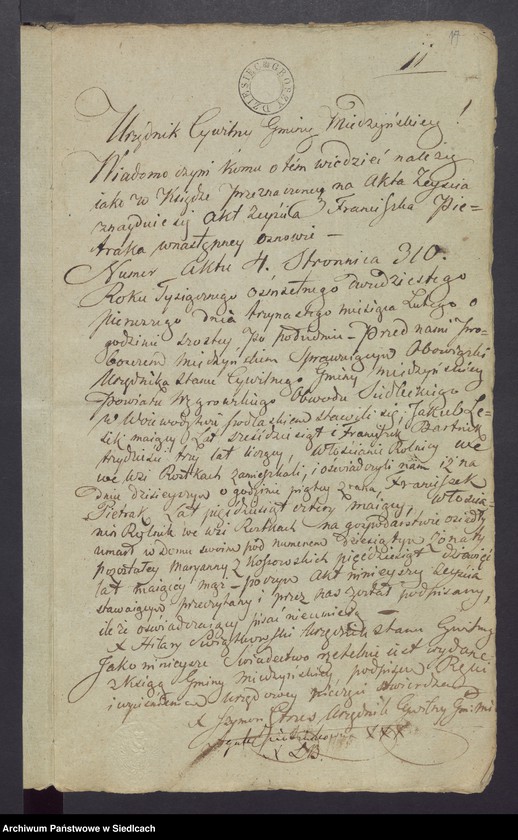 11
DZIESIĘC GROSZY
Urzędnik Cywilny Gminy Miedzyńskiey!
Wiadomo czyni komu o tem wiedzieć należy
iako w Księdze przeznaczoney na Akta Zeyścia
znayduie się Akt Zeyścia Franciszka Pie-
traka w następney osnowie –
Numer Aktu 4. Stronnica 310.
Roku Tysiącznego ośmsetnego dwudziestego
pierwszego dnia trzynastego miesiąca Lutego o
godzinie szostey po południu – Przed nami Pro-
boszczem miedzyńskiem sprawuiącym Obowiązki
Urzędnika stanu Cywilnego Gminy miedzyńskiey
Powiatu Węgrowskiego Obwodu Siedleckiego
w Woiewodztwie podlaskiem stawili się, Jakub Le-
sik maiący Lat sześćdziesiąt i Franciszek Bartnik
trzydzieści trzy lat liczący, Włościanie Rolnicy we
we wsi Rostkach zamieszkali, i oświadczyli nam iż na
dniu dzisieyszym o godzinie piątey z rana, Franciszek
Pietrak Lat pięćdziesiąt cztery maiący, Włościa-
nin Rolnik we wsi Rostkach na gospodarstwie osiadły
umarł w Domu swoim pod numerem dziesiątym
pozostałey Maryanny z Kossowskich pięćdziesiąt
lat maiącey mąż – poczym Akt ninieyszy Zeyścia
stawaiącym przeczytany i przez nas został podpisany,
ile że oświadczaiący pisać nieumieią –
X Hilary Urzędnik stanu Cywilny
Jako ninieysze Świadectwo rzetelnie iest wydane
z Księgi Gminy miedzyńskiey, podpisem Ręki
i wyciśnieniem Urzędowey pieczęci stwierdzam
X Szymon Urzędnik Cywilny Gm: Mi-
XXX
Archiwum Państwowe w Siedlcach